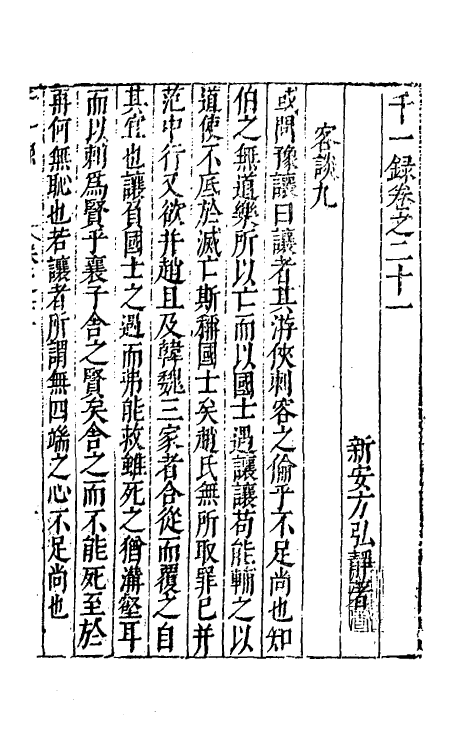 千一録卷之二十一
新安方弘靜著
客談九
或問豫讓曰讓者其游俠刺客之倫乎不足尚也知
伯之無道樂所以亡而以國士遇讓讓苟能輔之以
道使不底於滅亡斯稱國士矣趙氏無所取罪已并
范中行又欲并趙且及韓魏三家者合從而覆之自
其宜也讓負國士之遇而弗能救雖死之猶溝壑耳
而以刺為賢乎襄子舍之賢矣舍之而不能死至於
再何無恥也若讓者所謂無四端之心不足尚也